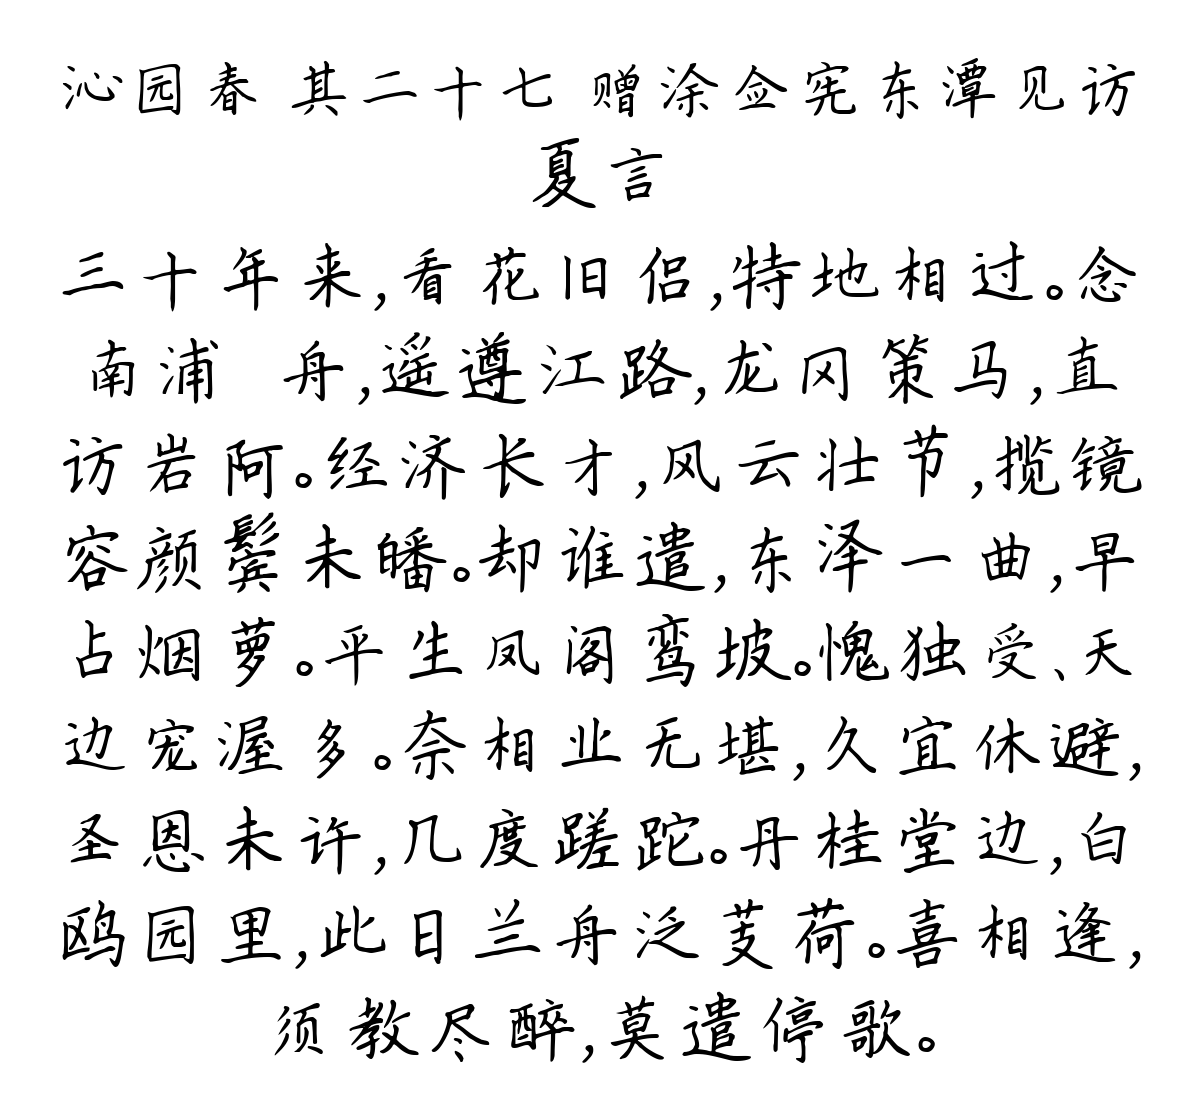 沁园春 其二十七 赠涂佥宪东潭见访
夏言
三十年来,看花旧侣,特地相过。念
南浦 舟,遥遵江路,龙冈策马,直
访岩阿。经济长才,风云壮节,揽镜
容颜鬓未皤。却谁遣,东泽一曲,早
占烟萝。平生凤阁鸾坡。愧独受、天
边宠渥多。奈相业无堪,久宜休避,
圣恩未许,几度蹉跎。丹桂堂边,白
鸥园里,此日兰舟泛芰荷。喜相逢,
须教尽醉,莫遣停歌。